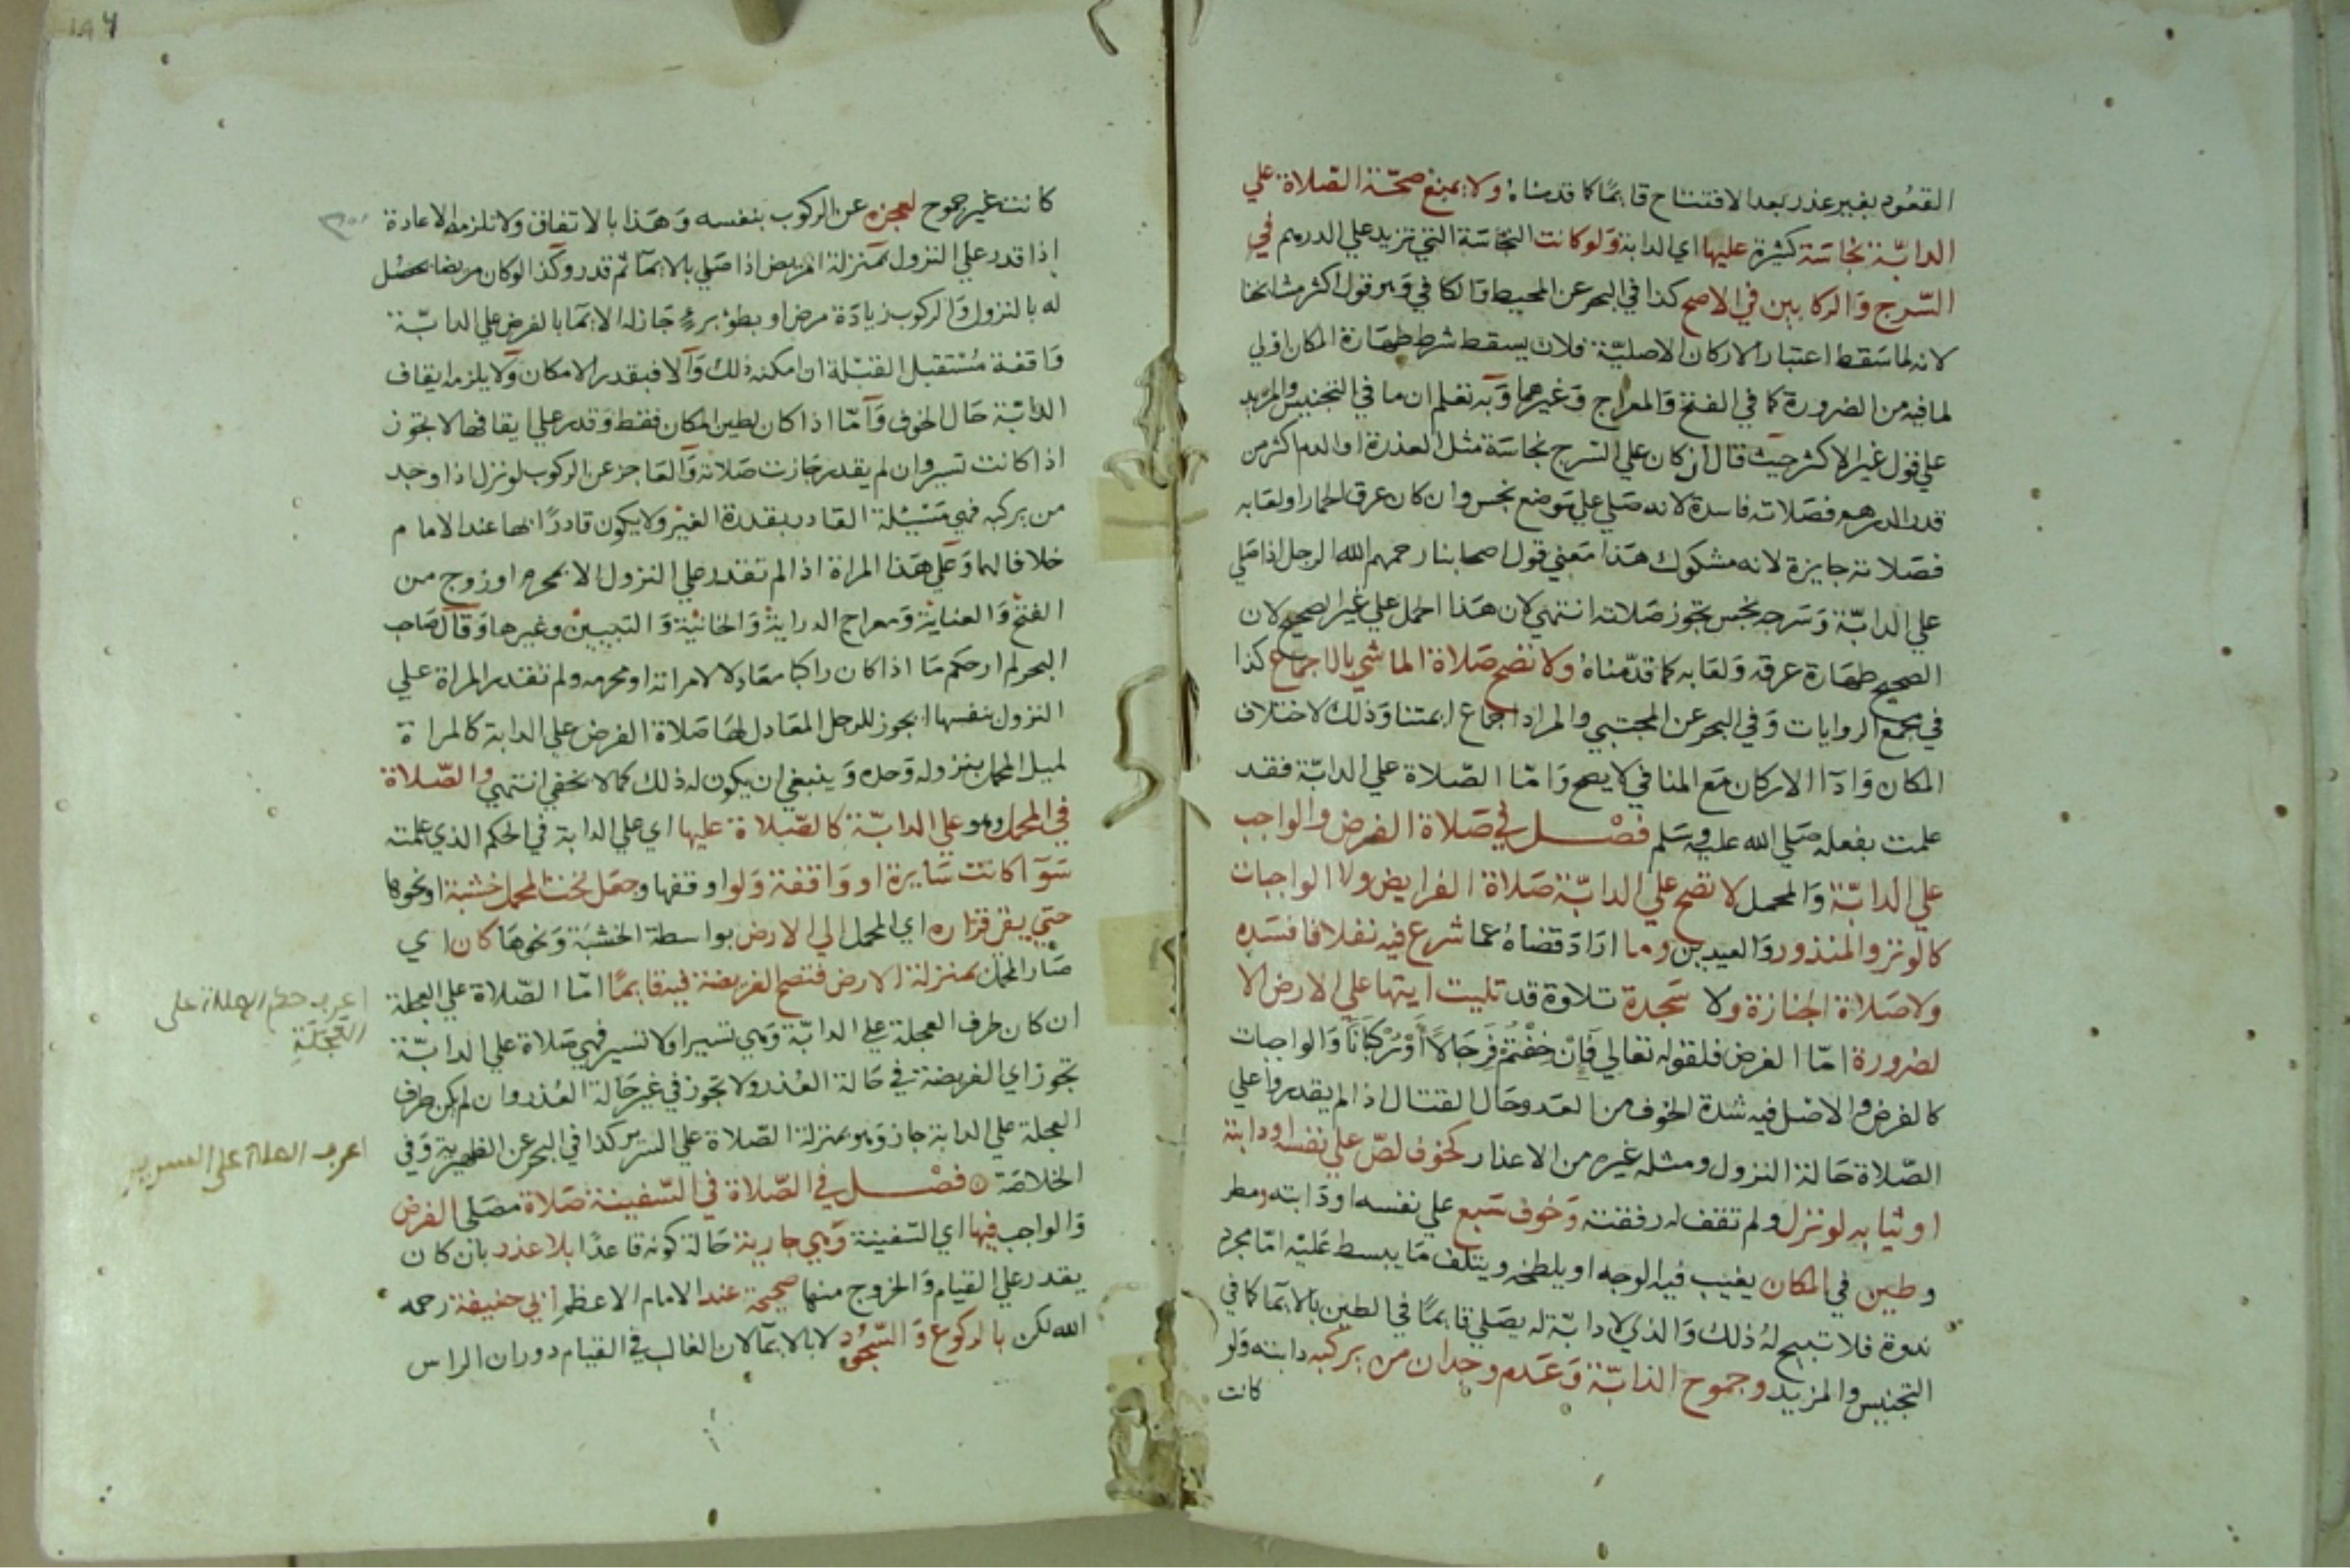 القعود بغير عذر بعد الافتتاح قايما كما قدمناه ولا يمنع صحة الصلاة علي
الدابة نجاسة كثيرة عليها اي الدابة ولو كانت النجاسة التي تزيد علي الدرهم في
السرج والركابين في الاصح كذا في البحر عن المحيط والكافي وهو قول اكثر مشايخنا
لانه لما سقط اعتبار الاركان الاصلية فلان يسقط شرط طهارة المكان اولي
لما فيه من الضرورة كما في الفتح والمعراج وغيرهما وبه نعلم ان ما في التجنيس والمزيد
علي قول غير الاكثر حيث قال ان كان علي السرج نجاسة مثل العذرة او الدم اكثر من
قدر الدرهم فصلاته فاسدة لانه صلي علي موضع نجس وان كان عرق الحمار او لعابه
فصلاته جايزة لانه مشكوك هذا معني قول اصحابنا رحمهم الله الرجل اذا صلي
علي الدابة وسرجه نجس تجوز صلاته انتهي لان هذا الحمل علي غير الصحيح لان
الصحيح طهارة عرقه ولعابه كما قدمناه ولا تصح صلاة الماشي بالاجماع كذا
في مجمع الروايات وفي البحر عن المجتبي والمراد اجماع ايمتنا وذلك لاختلاف
المكان واداا الاركان مع المنافي لا يصح واما الصلاة علي الدابة فقد
علمت بفعله صلي الله عليه وسلم فصل في صلاة الفرض والواجب
علي الدابة والمحمل لا تصح علي الدابة صلاة الفرايض ولا الواجبات
كالوتر والمنذور والعيدين وما اراد قضاه عما شرع فيه نفلا فافسده
ولا صلاة الجنازة ولا سجدة تلاوة قد تليت ايتها علي الارض الا
لضرورة اما الفرض فلقوله تعالي فَإِنْ خِفْتُمْ فَرِجَالًا أَوْ رُكْبَانًا والواجبات
كالفرض والاصل فيه شدة الخوف من العدو حال القتال اذا لم يقدروا علي
الصلاة حالة النزول ومثله غيره من الاعذار كخوف لص علي نفسه او دابته
او ثيابه لو نزل ولم تقف له رفقته وخوف سبع علي نفسه او دابته ومطر
وطين في المكان يغيب فيه الوجه او يلطخه ويتلف ما يبسط عليه اما مجرد
ندوة فلا تبيح له ذلك والذي لا دابة له يصلي قايما في الطين بالايما كما في
التجنيس والمزيد وجموح الدابة وعدم وجدان من يركبه دابته ولو
كانت
كانت غير جموح لعجزه عن الركوب بنفسه وهذا بالاتفاق ولا تلزمه الاعادة
اذا قدر علي النزول بمنزلة المريض اذا صلي بالايما ثم قدر وكذا لو كان مريضا يحصل
له بالنزول والركوب زيادة مرض او بطؤ برء جاز له الايما بالفرض علي الدابة
واقفة مستقبل القبلة ان امكنه ذلك والا فبقدر الامكان ولا يلزمه ايقاف
الدابة حال الخوف واما اذا كان لطين المكان فقط وقدر علي ايقافها لا تجوز
اذا كانت تسير وان لم يقدر جازت صلاته والعاجز عن الركوب لو نزل اذا وجد
من يركبه فهي مسئلة القادر بقدرة الغير ولا يكون قادرا بها عند الامام
خلافا لهما وعلي هذا المراة اذا لم تقدر علي النزول الا بمحرم او زوج من
الفتح والعناية ومعراج الدراية والخانية والتبيين وغيرها وقال صاحب
البحر لم ار حكم ما اذا كان راكبا معادلا لامراته او محرمه ولم تقدر المراة علي
النزول بنفسها ايجوز للرجل المعادل لها صلاة الفرض علي الدابة كالمراة
لميل المحمل بنزوله وحده وينبغي ان يكون له ذلك كما لا يخفي انتهي والصلاة
في المحمل وهو علي الدابة كالصلاة عليها اي علي الدابة في الحكم الذي علمته
سوا كانت سايرة او واقفة ولو اوقفها وجعل تحت المحمل خشبة او نحوها
حتي يقر قراره اي المحمل الي الارض بواسطة الخشبة ونحوها كان اي
صار المحمل بمنزلة الارض فتصح الفريضة فيه قايما اما الصلاة علي العجلة
ان كان طرف العجلة علي الدابة وهي تسير او لا تسير فهي صلاة علي الدابة
تجوز اي الفريضة في حالة العذر ولا تجوز في غير حالة العذر وان لم يكن طرف
العجلة علي الدابة جاز وهو بمنزلة الصلاة علي السرير كذا في البحر عن الظهيرية وفي
الخلاصة فصل في الصلاة في السفينة صلاة مصلي الفرض
والواجب فيها اي السفينة وهي جارية حالة كونه قاعدا بلا عذر بان كان
يقدر علي القيام والخروج منها صحيحة عند الامام الاعظم ابي حنيفة رحمه
الله لكن بالركوع والسجود لا بالايما لان الغالب في القيام دوران الراس
اعرف حكم الصلاة على
العَجَلَةِ
اعرف الصلاة على السرير